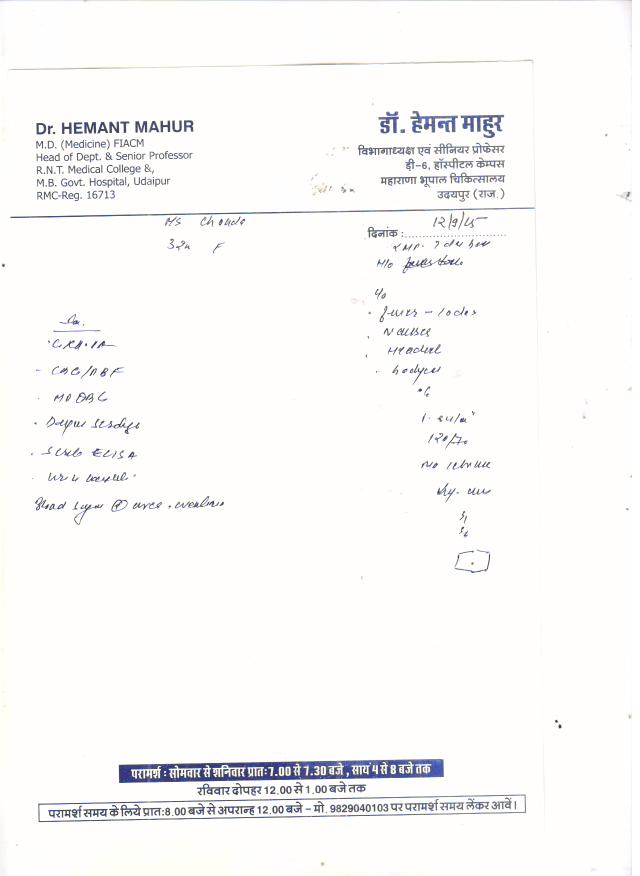 Dr. HEMANT MAHUR
M.D. (Medicine) FIACM
Head of Dept. & Senior Professor
R.N.T. Medical College &,
M.B. Govt. Hospital, Udaipur
RMC-Reg. 16713
डॉ. हेमन्त माहुर
विभागाध्यक्ष एवं सीनियर प्रोफेसर
डी-6, हॉस्पीटल केम्पस
महाराणा भूपाल चिकित्सालय
उदयपुर (राज.)
दिनांक : 12/9/25
MS
32y F
H/o
c/o
fever - 10 days
Nausea
Headache
bodyache
120/70
No icterus
S1
S2
CXR-PA
- CBC/PBF
Scrub ELISA
Blood Sugar urea, creatinine
परामर्श : सोमवार से शनिवार प्रातः 7.00 से 7.30 बजे, सायं 4 से 8 बजे तक
रविवार दोपहर 12.00 से 1.00 बजे तक
परामर्श समय के लिये प्रातः 8.00 बजे से अपरान्ह 12.00 बजे – मो. 9829040103 पर परामर्श समय लेंकर आवें।